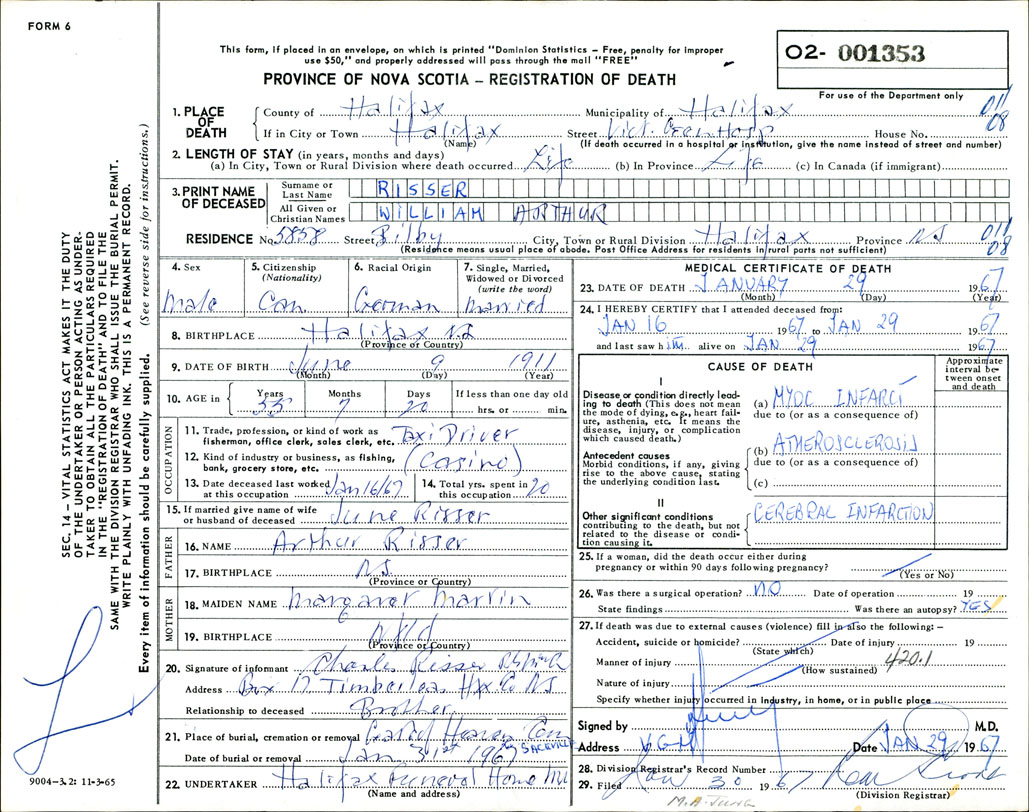 FORM 6
This form, if placed in an envelope, on which is printed "Dominion Statistics – Free, penalty for improper
use $50," and properly addressed will pass through the mail "FREE"
PROVINCE OF NOVA SCOTIA – REGISTRATION OF DEATH
O2- 001353
For use of the Department only
011
08
1. PLACE OF DEATH
County of Halifax Municipality of Halifax
If in City or Town Halifax Street Vict. Gen Hosp House No.
(Name) (If death occurred in a hospital or institution, give the name instead of street and number)
2. LENGTH OF STAY (in years, months and days)
(a) In City, Town or Rural Division where death occurred Life (b) In Province Life (c) In Canada (if immigrant)
3. PRINT NAME OF DECEASED
Surname or Last Name RISSER
All Given or Christian Names WILLIAM ARTHUR
RESIDENCE No. 5858 Street Bilby City, Town or Rural Division Halifax Province NS
011
08
(Residence means usual place of abode. Post Office Address for residents in rural parts not sufficient)
4. Sex
Male
5. Citizenship (Nationality)
Can
6. Racial Origin
German
7. Single, Married, Widowed or Divorced (write the word)
Married
8. BIRTHPLACE Halifax NS
(Province or Country)
9. DATE OF BIRTH June 9 1911
(Month) (Day) (Year)
10. AGE in Years 55 Months 7 Days 20 If less than one day old hrs. or min.
OCCUPATION
11. Trade, profession, or kind of work as fisherman, office clerk, sales clerk, etc. Taxi Driver
12. Kind of industry or business, as fishing, bank, grocery store, etc. (Casino)
13. Date deceased last worked at this occupation Jan 16/67
14. Total yrs. spent in this occupation 20
15. If married give name of wife or husband of deceased June Risser
FATHER
16. NAME Arthur Risser
17. BIRTHPLACE NS
(Province or Country)
MOTHER
18. MAIDEN NAME Margaret Martin
19. BIRTHPLACE Nfld
(Province or Country)
20. Signature of informant Charles Risser
Address Box Timberlea Hx Co NS
Relationship to deceased Brother
21. Place of burial, cremation or removal Sackville
Date of burial or removal Jan 31st 1967
22. UNDERTAKER Halifax Funeral Home
(Name and address)
MEDICAL CERTIFICATE OF DEATH
23. DATE OF DEATH JANUARY 29 1967
(Month) (Day) (Year)
24. I HEREBY CERTIFY that I attended deceased from:
JAN 16 1967 to JAN 29 1967
and last saw him alive on JAN 29 1967
CAUSE OF DEATH
Approximate interval between onset and death
I
Disease or condition directly leading to death (This does not mean the mode of dying, e.g., heart failure, asthenia, etc. It means the disease, injury, or complication which caused death.)
(a) MYOC INFARCT
due to (or as a consequence of)
Antecedent causes
Morbid conditions, if any, giving rise to the above cause, stating the underlying condition last.
(b) ATHEROSCLEROSIS
due to (or as a consequence of)
(c)
II
Other significant conditions
contributing to the death, but not related to the disease or condition causing it.
CEREBRAL INFARCTION
25. If a woman, did the death occur either during
pregnancy or within 90 days following pregnancy?
(Yes or No)
26. Was there a surgical operation? NO Date of operation 19
State findings Was there an autopsy? YES
27. If death was due to external causes (violence) fill in also the following: –
Accident, suicide or homicide? Date of injury 19
(State which)
Manner of injury 420.1
(How sustained)
Nature of injury
Specify whether injury occurred in Industry, in home, or in public place
Signed by M.D.
Address V.G.H Date JAN 29 1967
28. Division Registrar's Record Number
29. Filed Jan 30 1967
(Division Registrar)
M.A. JUNG
SEC. 14 – VITAL STATISTICS ACT MAKES IT THE DUTY
OF THE UNDERTAKER OR PERSON ACTING AS UNDER-
TAKER TO OBTAIN ALL THE PARTICULARS REQUIRED
IN THE "REGISTRATION OF DEATH" AND TO FILE THE
SAME WITH THE DIVISION REGISTRAR WHO SHALL ISSUE THE BURIAL PERMIT.
WRITE PLAINLY WITH UNFADING INK. THIS IS A PERMANENT RECORD.
Every item of information should be carefully supplied. (See reverse side for instructions.)
9004–3.2: 11-3-65